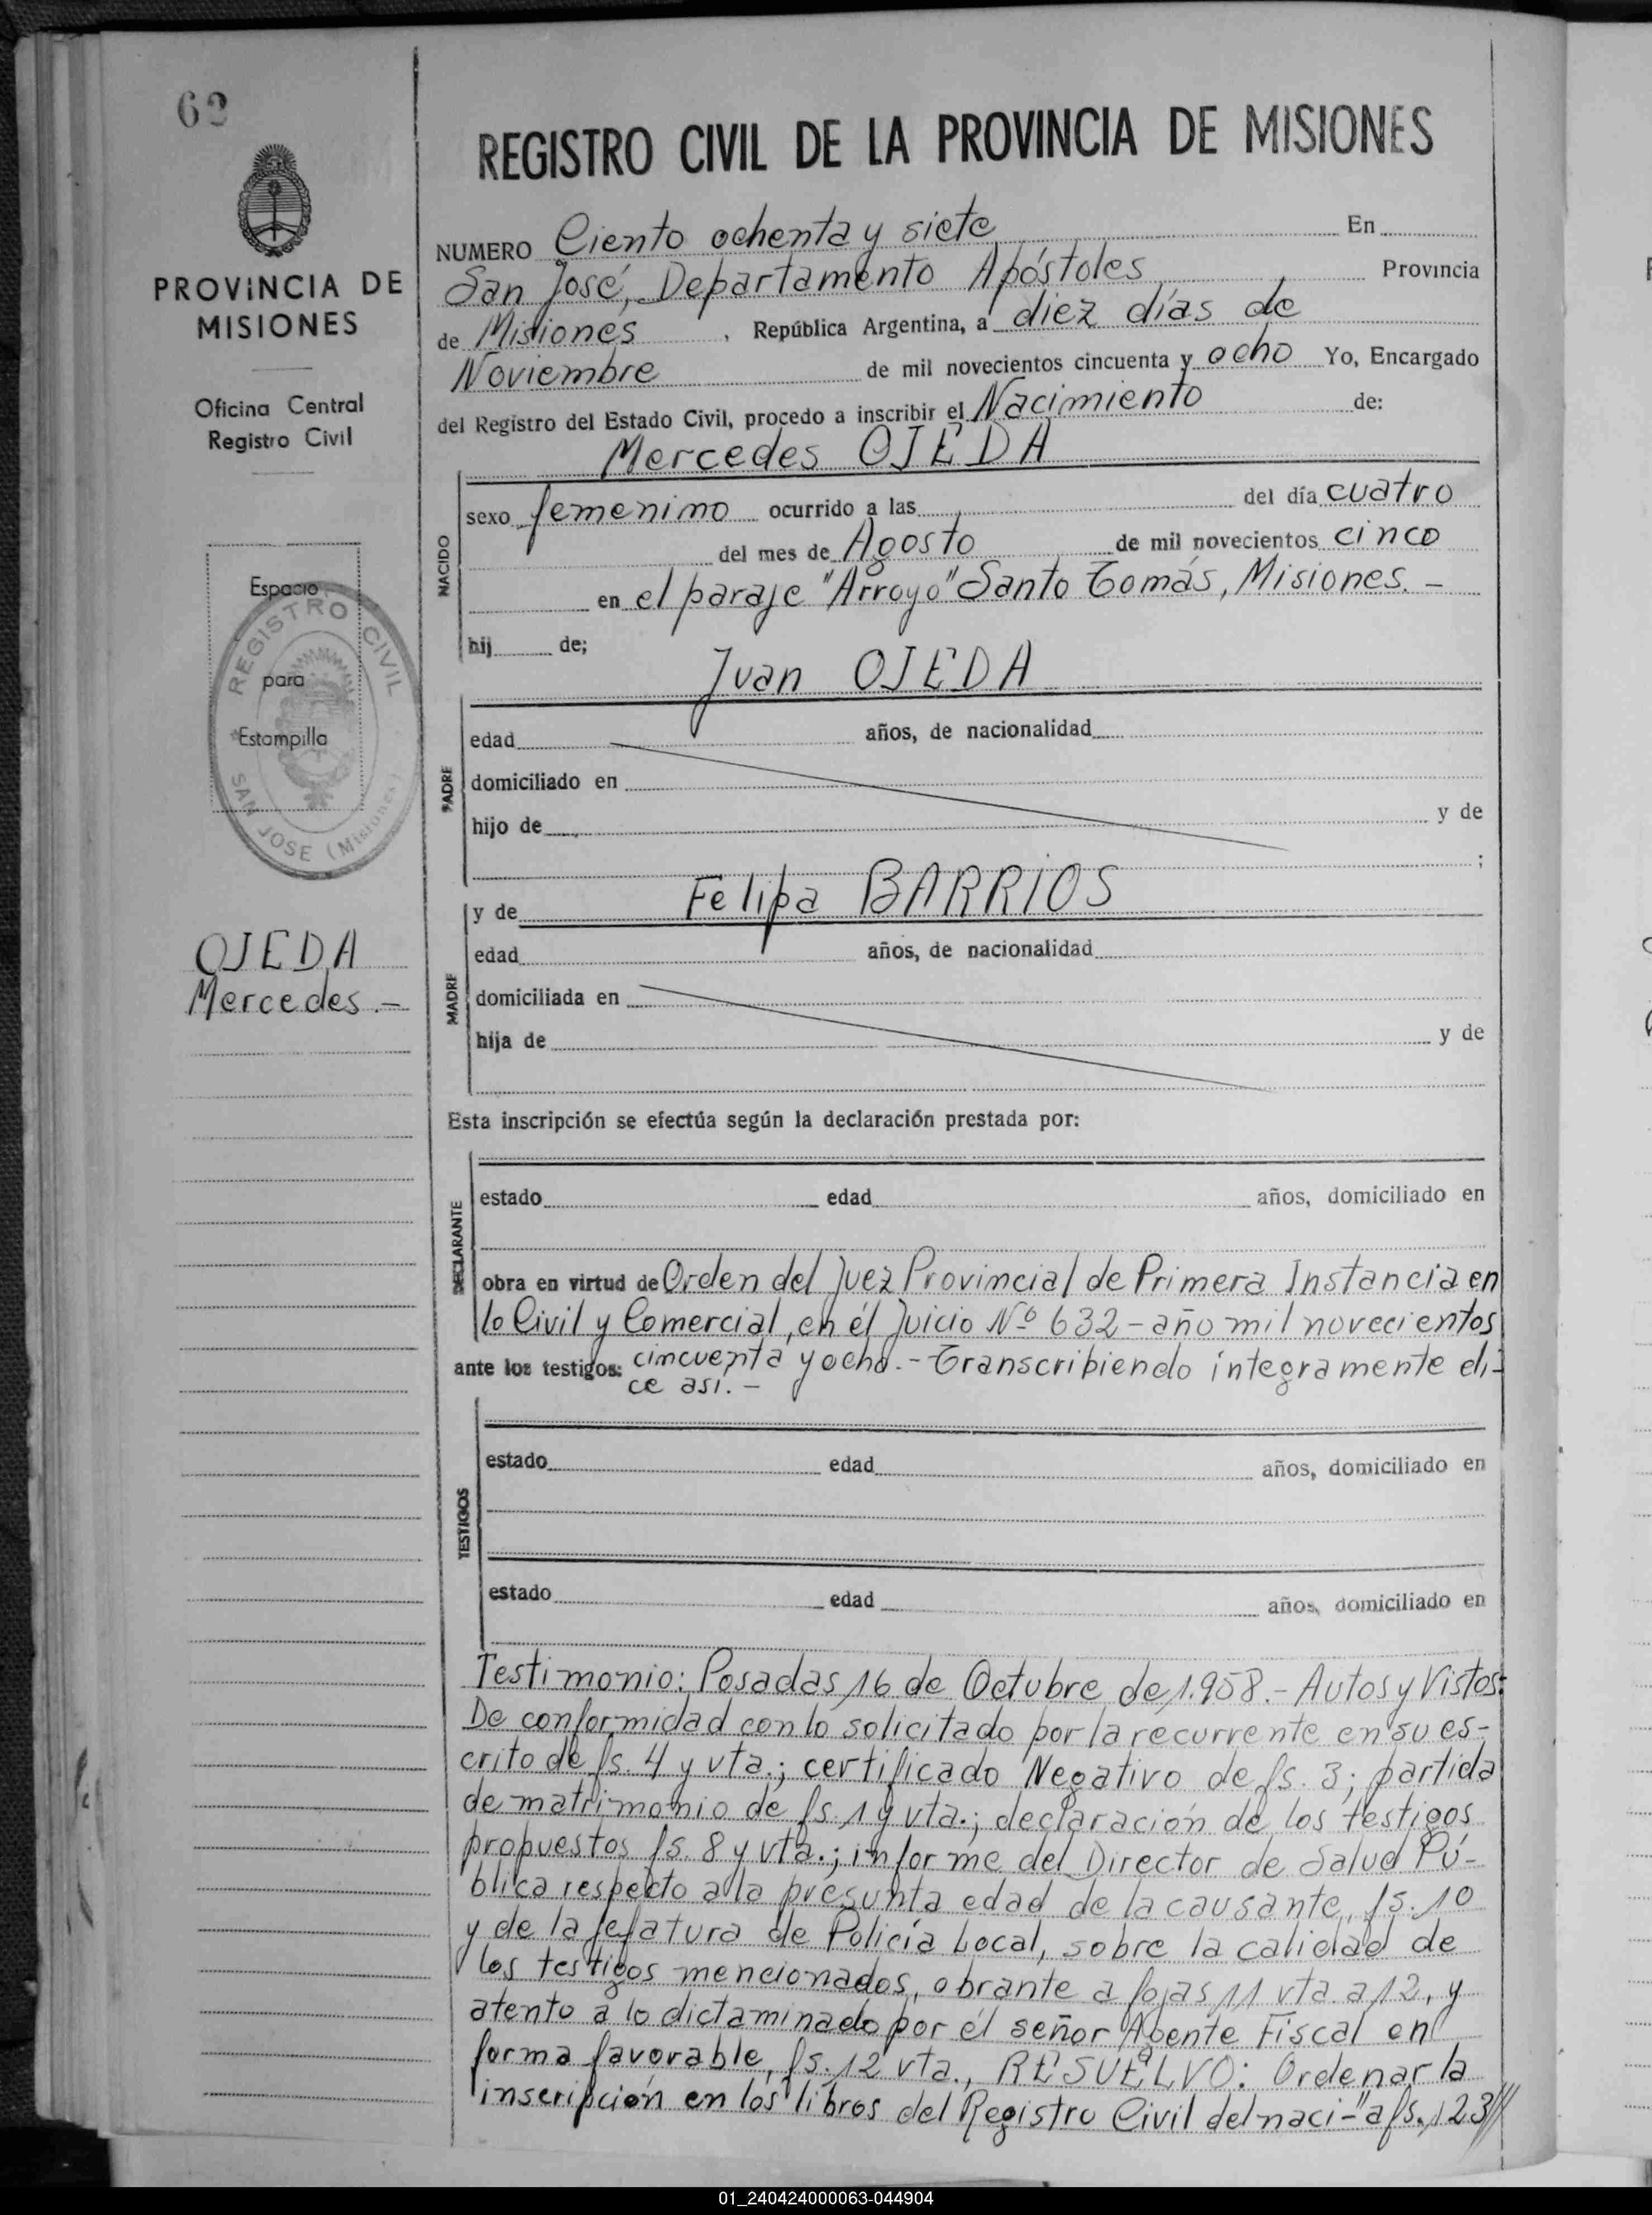 62
PROVINCIA DE
MISIONES
Oficina Central
Registro Civil
Espacio
para
Estampilla
REGISTRO CIVIL
SAN JOSE (Misiones)
OJEDA
Mercedes.-
REGISTRO CIVIL DE LA PROVINCIA DE MISIONES
NUMERO Ciento ochenta y siete En
San José, Departamento Apóstoles Provincia
de Misiones, República Argentina, a diez días de
Noviembre de mil novecientos cincuenta y ocho Yo, Encargado
del Registro del Estado Civil, procedo a inscribir el Nacimiento de:
Mercedes OJEDA
NACIDO
sexo femenino ocurrido a las del día cuatro
del mes de Agosto de mil novecientos cinco
en el paraje "Arroyo" Santo Tomás, Misiones.-
hij de;
Juan OJEDA
PADRE
edad años, de nacionalidad
domiciliado en
hijo de y de
;
y de Felipa BARRIOS
MADRE
edad años, de nacionalidad
domiciliada en
hija de y de
Esta inscripción se efectúa según la declaración prestada por:
DECLARANTE
estado edad años, domiciliado en
obra en virtud de Orden del Juez Provincial de Primera Instancia en
lo Civil y Comercial, en él Juicio Nº 632-año mil novecientos
ante los testigos: cincuenta y ocho.-Transcribiendo íntegramente di-
ce asi.-
TESTIGOS
estado edad años, domiciliado en
estado edad años, domiciliado en
Testimonio: Posadas, 16 de Octubre de 1.958.- Autos y Vistos:
De conformidad con lo solicitado por la recurrente en su es-
crito de fs. 4 y vta.; certificado Negativo de fs. 3; partida
de matrimonio de fs. 1 y vta.; declaración de los testigos
propuestos fs. 8 y vta.; informe del Director de Salud Pú-
blica respecto a la presunta edad de la causante, fs. 10
y de la Jefatura de Policía Local, sobre la calidad de
los testigos mencionados, obrante a fojas 11 vta. a 12, y
atento a lo dictaminado por él señor Agente Fiscal en
forma favorable, fs. 12 vta., RESUELVO: Ordenar la
inscripción en los libros del Registro Civil del naci-"a fs. 123///
01_240424000063-044904